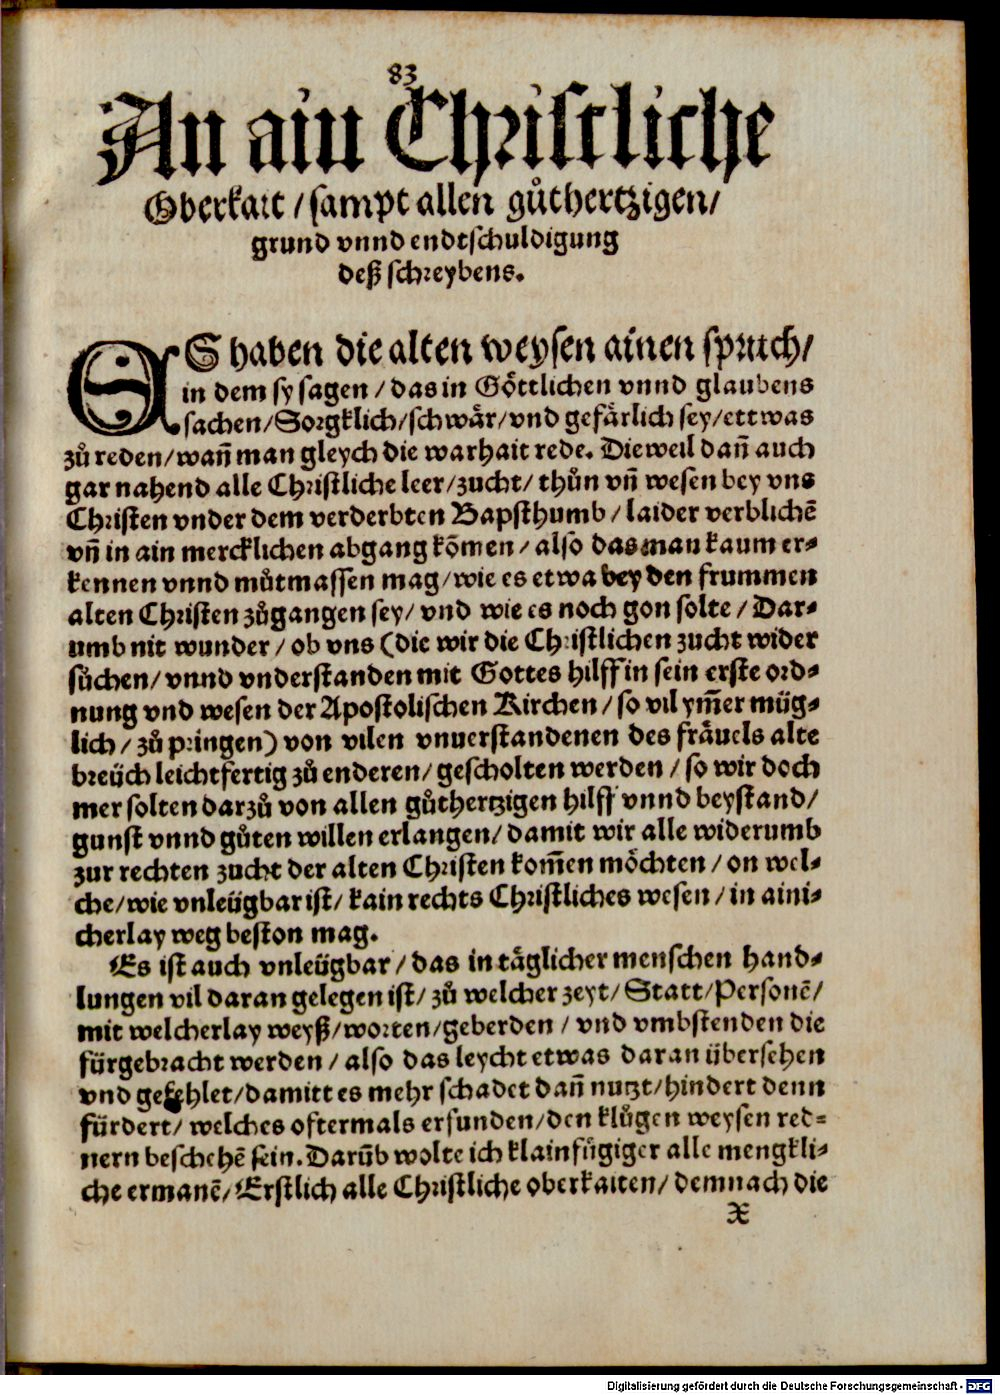 83
An ain Christliche
Oberkait / sampt allen gůthertzigen /
grund vnnd endtschuldigung
deß schreybens.
ES haben die alten weysen ainen spruch /
in dem sy sagen / das in Göttlichen vnnd glaubens
sachen / Sorgklich / schwär / vnd gefärlich sey / ettwas
zů reden / wañ man gleych die warhait rede. Dieweil dañ auch
gar nahend alle Christliche leer / zucht / thůn vñ wesen bey vns
Christen vnder dem verderbten Bapsthumb / laider verblichē
vñ in ain mercklichen abgang kōmen / also das man kaum er⸗
kennen vnnd můtmassen mag / wie es etwa bey den frummen
alten Christen zůgangen sey / vnd wie es noch gon solte / Dar⸗
umb nit wunder / ob vns (die wir die Christlichen zucht wider
sůchen / vnnd vnderstanden mit Gottes hilff in sein erste ord⸗
nung vnd wesen der Apostolischen Kirchen / so vil ym̄er müg⸗
lich / zů pringen) von vilen vnuerstandenen des fräuels alte
breüch leichtfertig zů enderen / gescholten werden / so wir doch
mer solten darzů von allen gůthertzigen hilff vnnd beystand /
gunst vnnd gůten willen erlangen / damit wir alle widerumb
zur rechten zucht der alten Christen kom̄en möchten / on wel⸗
che / wie vnleügbar ist / kain rechts Christliches wesen / in aini⸗
cherlay weg beston mag.
Es ist auch vnleügbar / das in täglicher menschen hand⸗
lungen vil daran gelegen ist / zů welcher zeyt / Statt / Personē /
mit welcherlay weyß / worten / geberden / vnd vmbstenden die
fürgebracht werden / also das leycht etwas daran übersehen
vnd gefehlet / damitt es mehr schadet dañ nutzt / hindert denn
fürdert / welches oftermals erfunden / den klůgen weysen red⸗
nern beschehē sein. Darūb wolte ich klainfůgiger alle mengkli⸗
che ermanē / Erstlich alle Christliche oberkaiten / demnach die
X
Digitalisierung gefördert durch die Deutsche Forschungsgemeinschaft - DFG